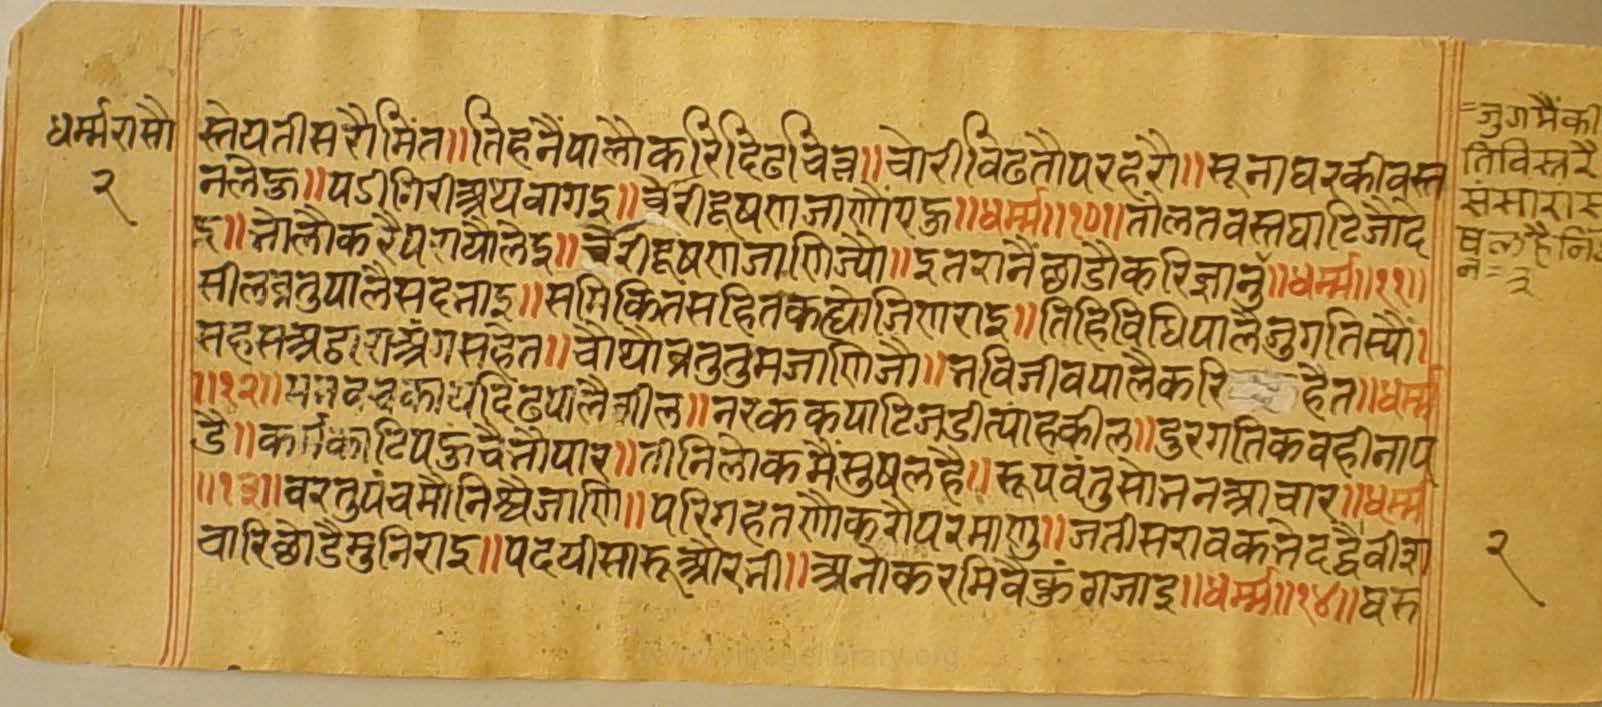 धर्म्मरासौ
२
स्तेयतीसरौमिंत॥तिहनैंपालौकरिदिढचित्त॥चोरीविढतौपरहरौ॥सूनाघरकीवस्त
नलेऊ॥पडीगिरीअथवागड॥वैरीदूषणजाणौंएऊ॥धर्म्म॥१०॥तौलतवस्तघाटिजोदे
इ॥तोलौकरैपरायौलेइ॥चैरीदूषणजाणिज्यौ॥इतरानैंछाडौकरिज्ञानुं॥धर्म्म॥११॥
सीलव्रतुपालैसदताइ॥समिकितसहितकह्योजिणराइ॥तिहिविधिपालैजुगतिस्यौं॥
सहसअढाराअंगसहेत॥चौथौव्रतुतुमजाणिजौ॥नविजीवपालैकरि हेत॥धर्म्म
॥१२॥मनवचकायदिढपालैसील॥नरककपाटिजडीत्यांहकील॥दुरगतिकवहीनाप
डै॥कर्मकाटिपऊचैतोपार॥तीनिलोकमैंसुषलहै॥रूपवंतुसोननआचार॥धर्म्म
॥१३॥वरतुपंचमौनिश्चैजाणि॥परिगहतणौकरौपरमाणु॥जतीसरावकनैदद्वै॥वीरा
चारिछोडैमुनिराइ॥पदयीसारूऔरनी॥अनोकरमिवैकुंगजाइ॥धर्म्म॥१४॥घरु
=जुगमैंकी
तिविस्तरै
संसारांस
षलहैनि
२